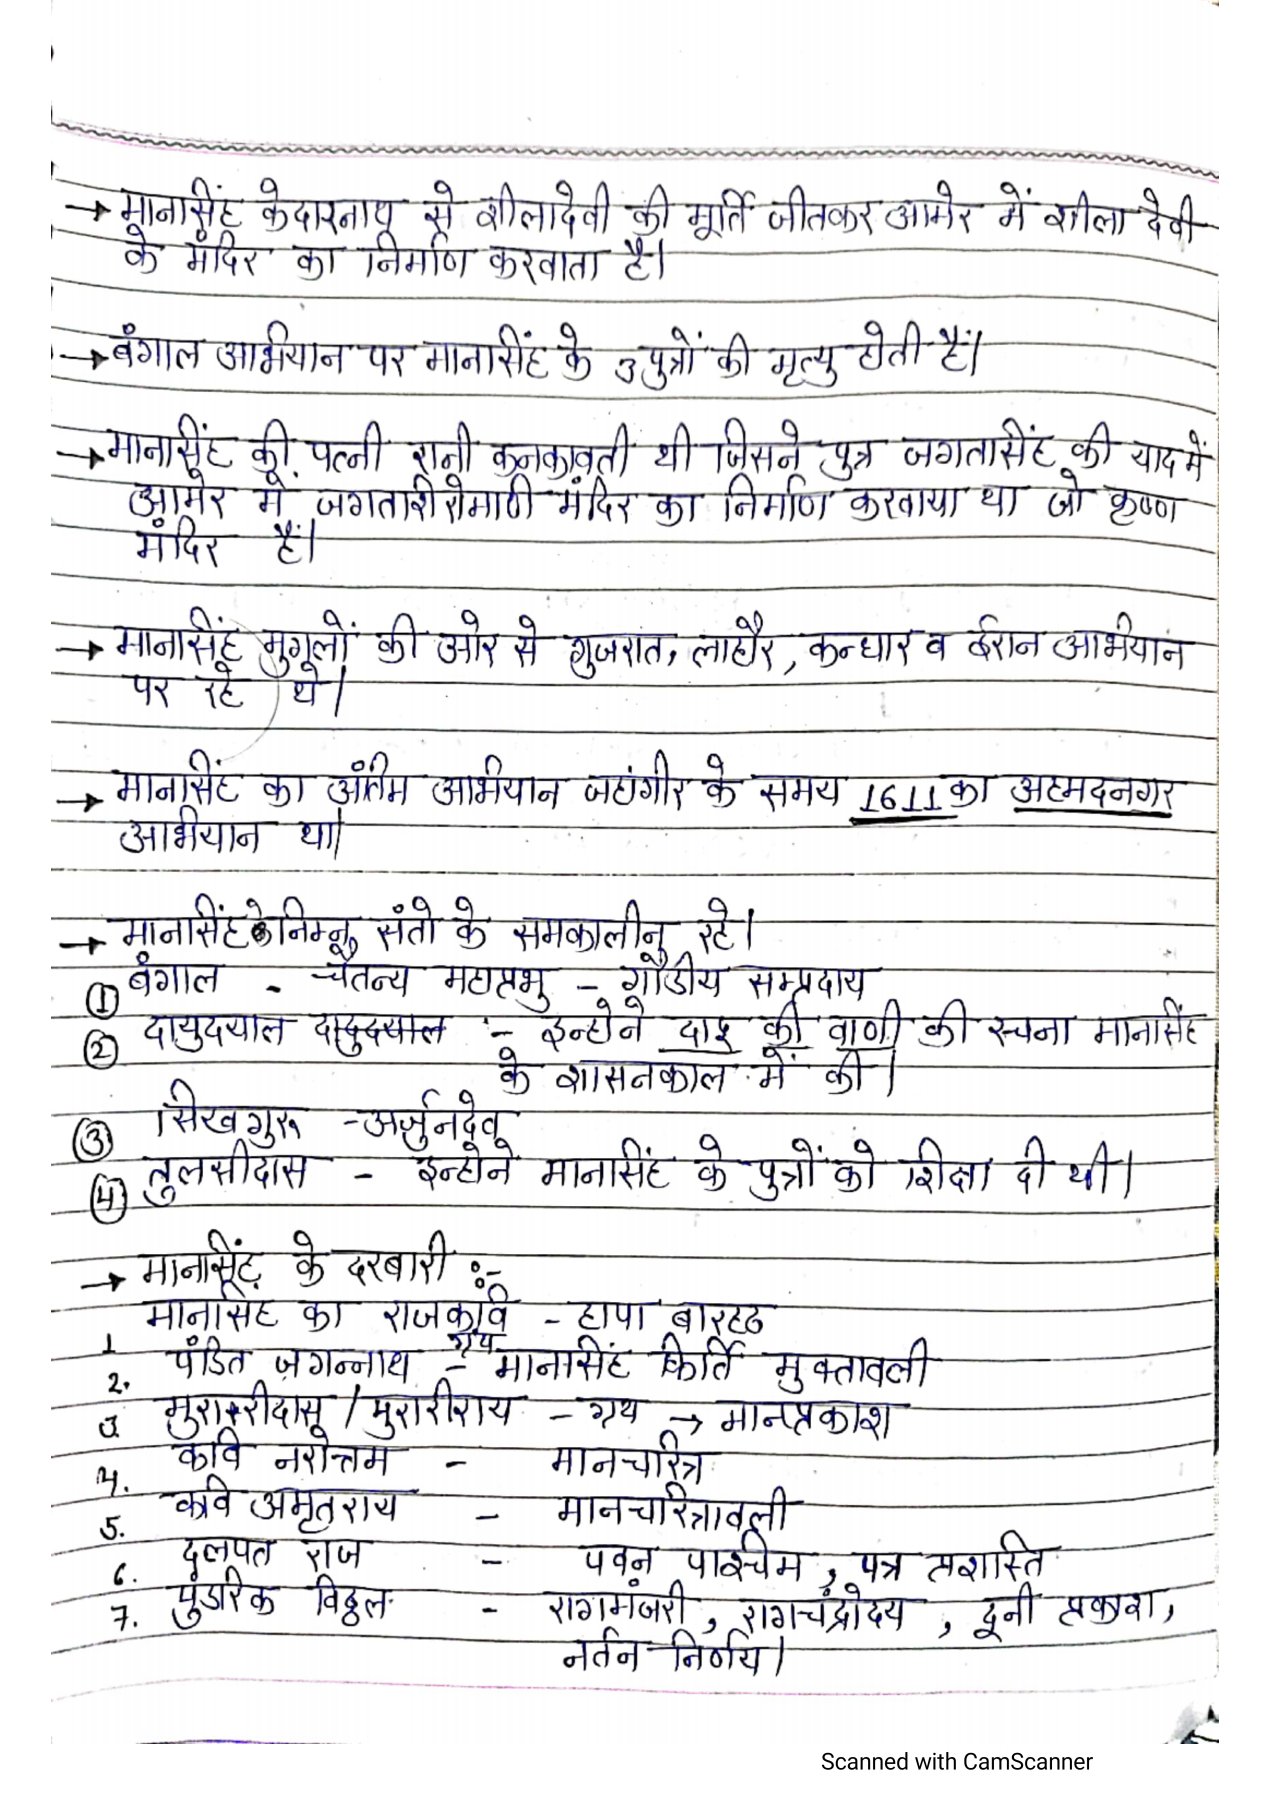 → मानसिंह केदारनाथ से शीलादेवी की मूर्ति जीतकर आमेर में शीला देवी
के मंदिर का निर्माण करवाता है।
→ बंगाल अभियान पर मानसिंह के 3 पुत्रों की मृत्यु होती हैं।
→ मानसिंह की पत्नी रानी कनकावती थी जिसने पुत्र जगतसिंह की याद में
आमेर में जगतशिरोमणी मंदिर का निर्माण करवाया था जो कृष्ण
मंदिर हैं।
→ मानसिंह मुगलों की ओर से गुजरात, लाहौर, कन्धार व ईरान अभियान
पर रहे थे।
→ मानसिंह का अंतिम अभियान जहांगीर के समय 1611 का अहमदनगर
अभियान था।
→ मानसिंह के निम्न संतो के समकालीन रहे।
① बंगाल - चैतन्य महाप्रभु - गौडीय सम्प्रदाय
② दायुदयाल दादुदयाल :- इन्होने दादू की वाणी की रचना मानसिंह
के शासनकाल में की।
③ सिखगुरू - अर्जुनदेव
④ तुलसीदास - इन्होने मानसिंह के पुत्रों को शिक्षा दी थी।
→ मानसिंह के दरबारी :-
1 मानसिंह का राजकवि - हापा बारहठ
2. पंडित जगन्नाथ - ग्रंथ मानसिंह किर्ति मुक्तावली
3. मुरारीदास / मुरारीराय - ग्रथ → मानप्रकाश
4. कवि नरोत्तम - मानचरित्र
5. कवि अमृतराय - मानचरित्रावली
6. दलपत राज - पवन पश्चिम, पत्र प्रशस्ति
7. पुंडरिक विठ्ठल - रागमंजरी, रागचंद्रोदय, दूनी प्रकाश,
नर्तन निर्णय।
Scanned with CamScanner